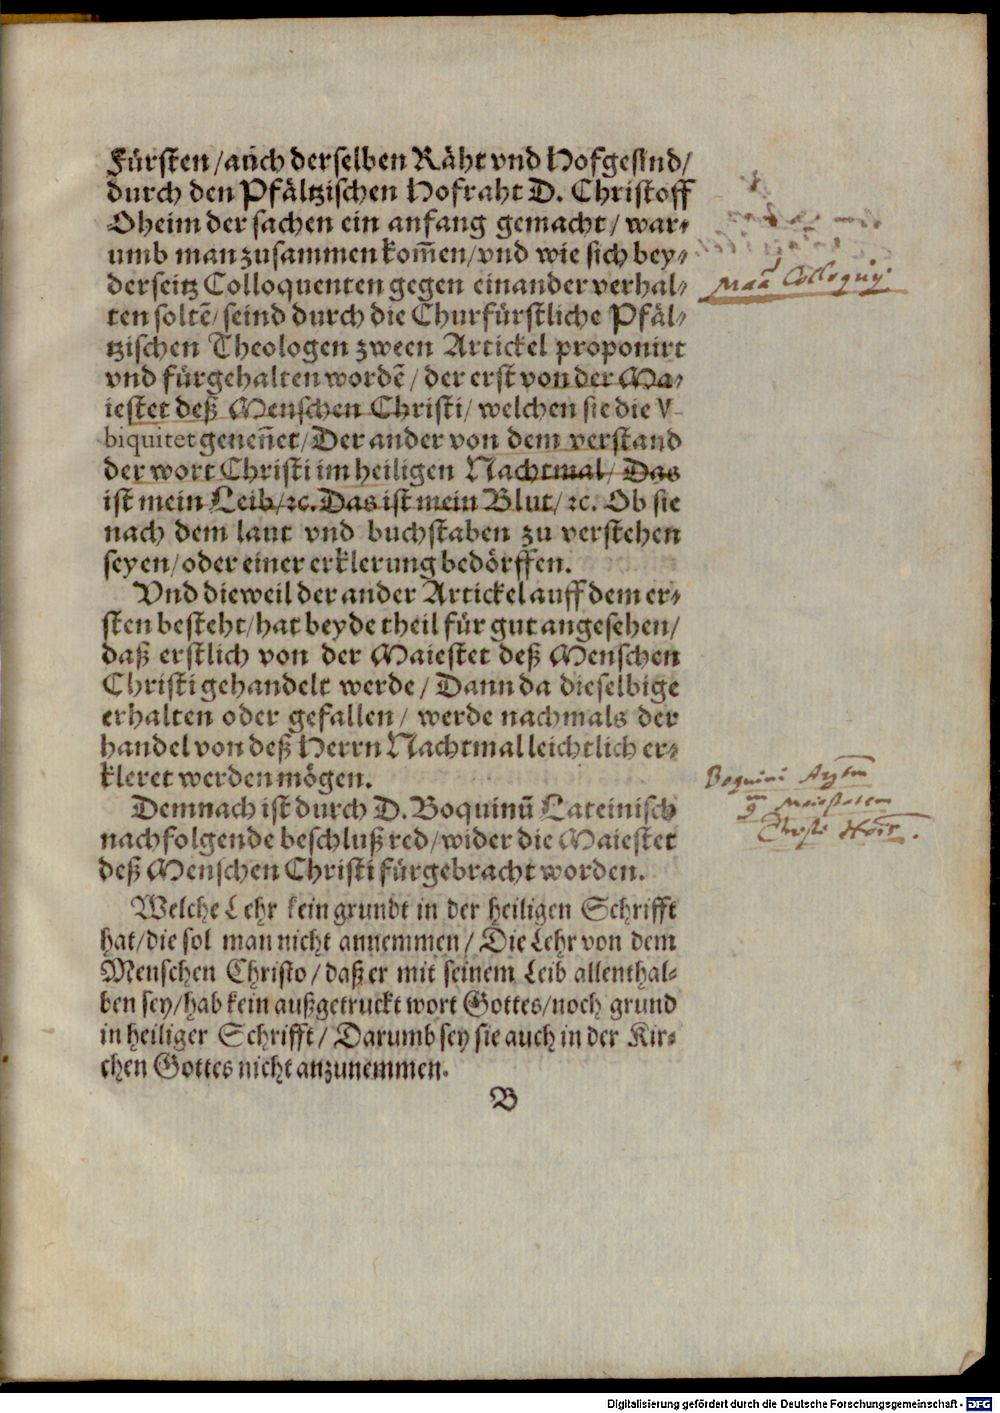 Fürsten/auch derselben Räht vnd Hofgesind/
durch den Pfältzischen Hofraht D. Christoff
Oheim der sachen ein anfang gemacht/ war⸗
umb man zusammen kom̃en/vnd wie sich bey⸗
derseitz Colloquenten gegen einander verhal⸗
ten soltẽ/ seind durch die Churfürstliche Pfäl⸗
tzischen Theologen zween Artickel proponirt
vnd fürgehalten wordẽ/ der erst von der Ma⸗
iestet deß Menschen Christi/ welchen sie die V-
biquitet genen̄et/ Der ander von dem verstand
der wort Christi im heiligen Nachtmal/ Das
ist mein Leib/ ꝛc. Das ist mein Blut/ ꝛc. Ob sie
nach dem laut vnd buchstaben zu verstehen
seyen/ oder einer erklerung bedörffen.
Vnd dieweil der ander Artickel auff dem er⸗
sten besteht/ hat beyde theil für gut angesehen/
daß erstlich von der Maiestet deß Menschen
Christi gehandelt werde/ Dann da dieselbige
erhalten oder gefallen/ werde nachmals der
handel von deß Herrn Nachtmal leichtlich er⸗
kleret werden mögen.
Demnach ist durch D. Boquinū Lateinisch
nachfolgende beschluß red/ wider die Maiestet
deß Menschen Christi fürgebracht worden.
Welche Lehr kein grundt in der heiligen Schrifft
hat/ die sol man nicht annemmen/ Die Lehr von dem
Menschen Christo/ daß er mit seinem Leib allenthal⸗
ben sey/ hab kein außgetruckt wort Gottes/ noch grund
in heiliger Schrifft/ Darumb sey sie auch in der Kir⸗
chen Gottes nicht anzunemmen.
B
Colloquij
Boquini
Maiestatem
Digitalisierung gefördert durch die Deutsche Forschungsgemeinschaft - DFG